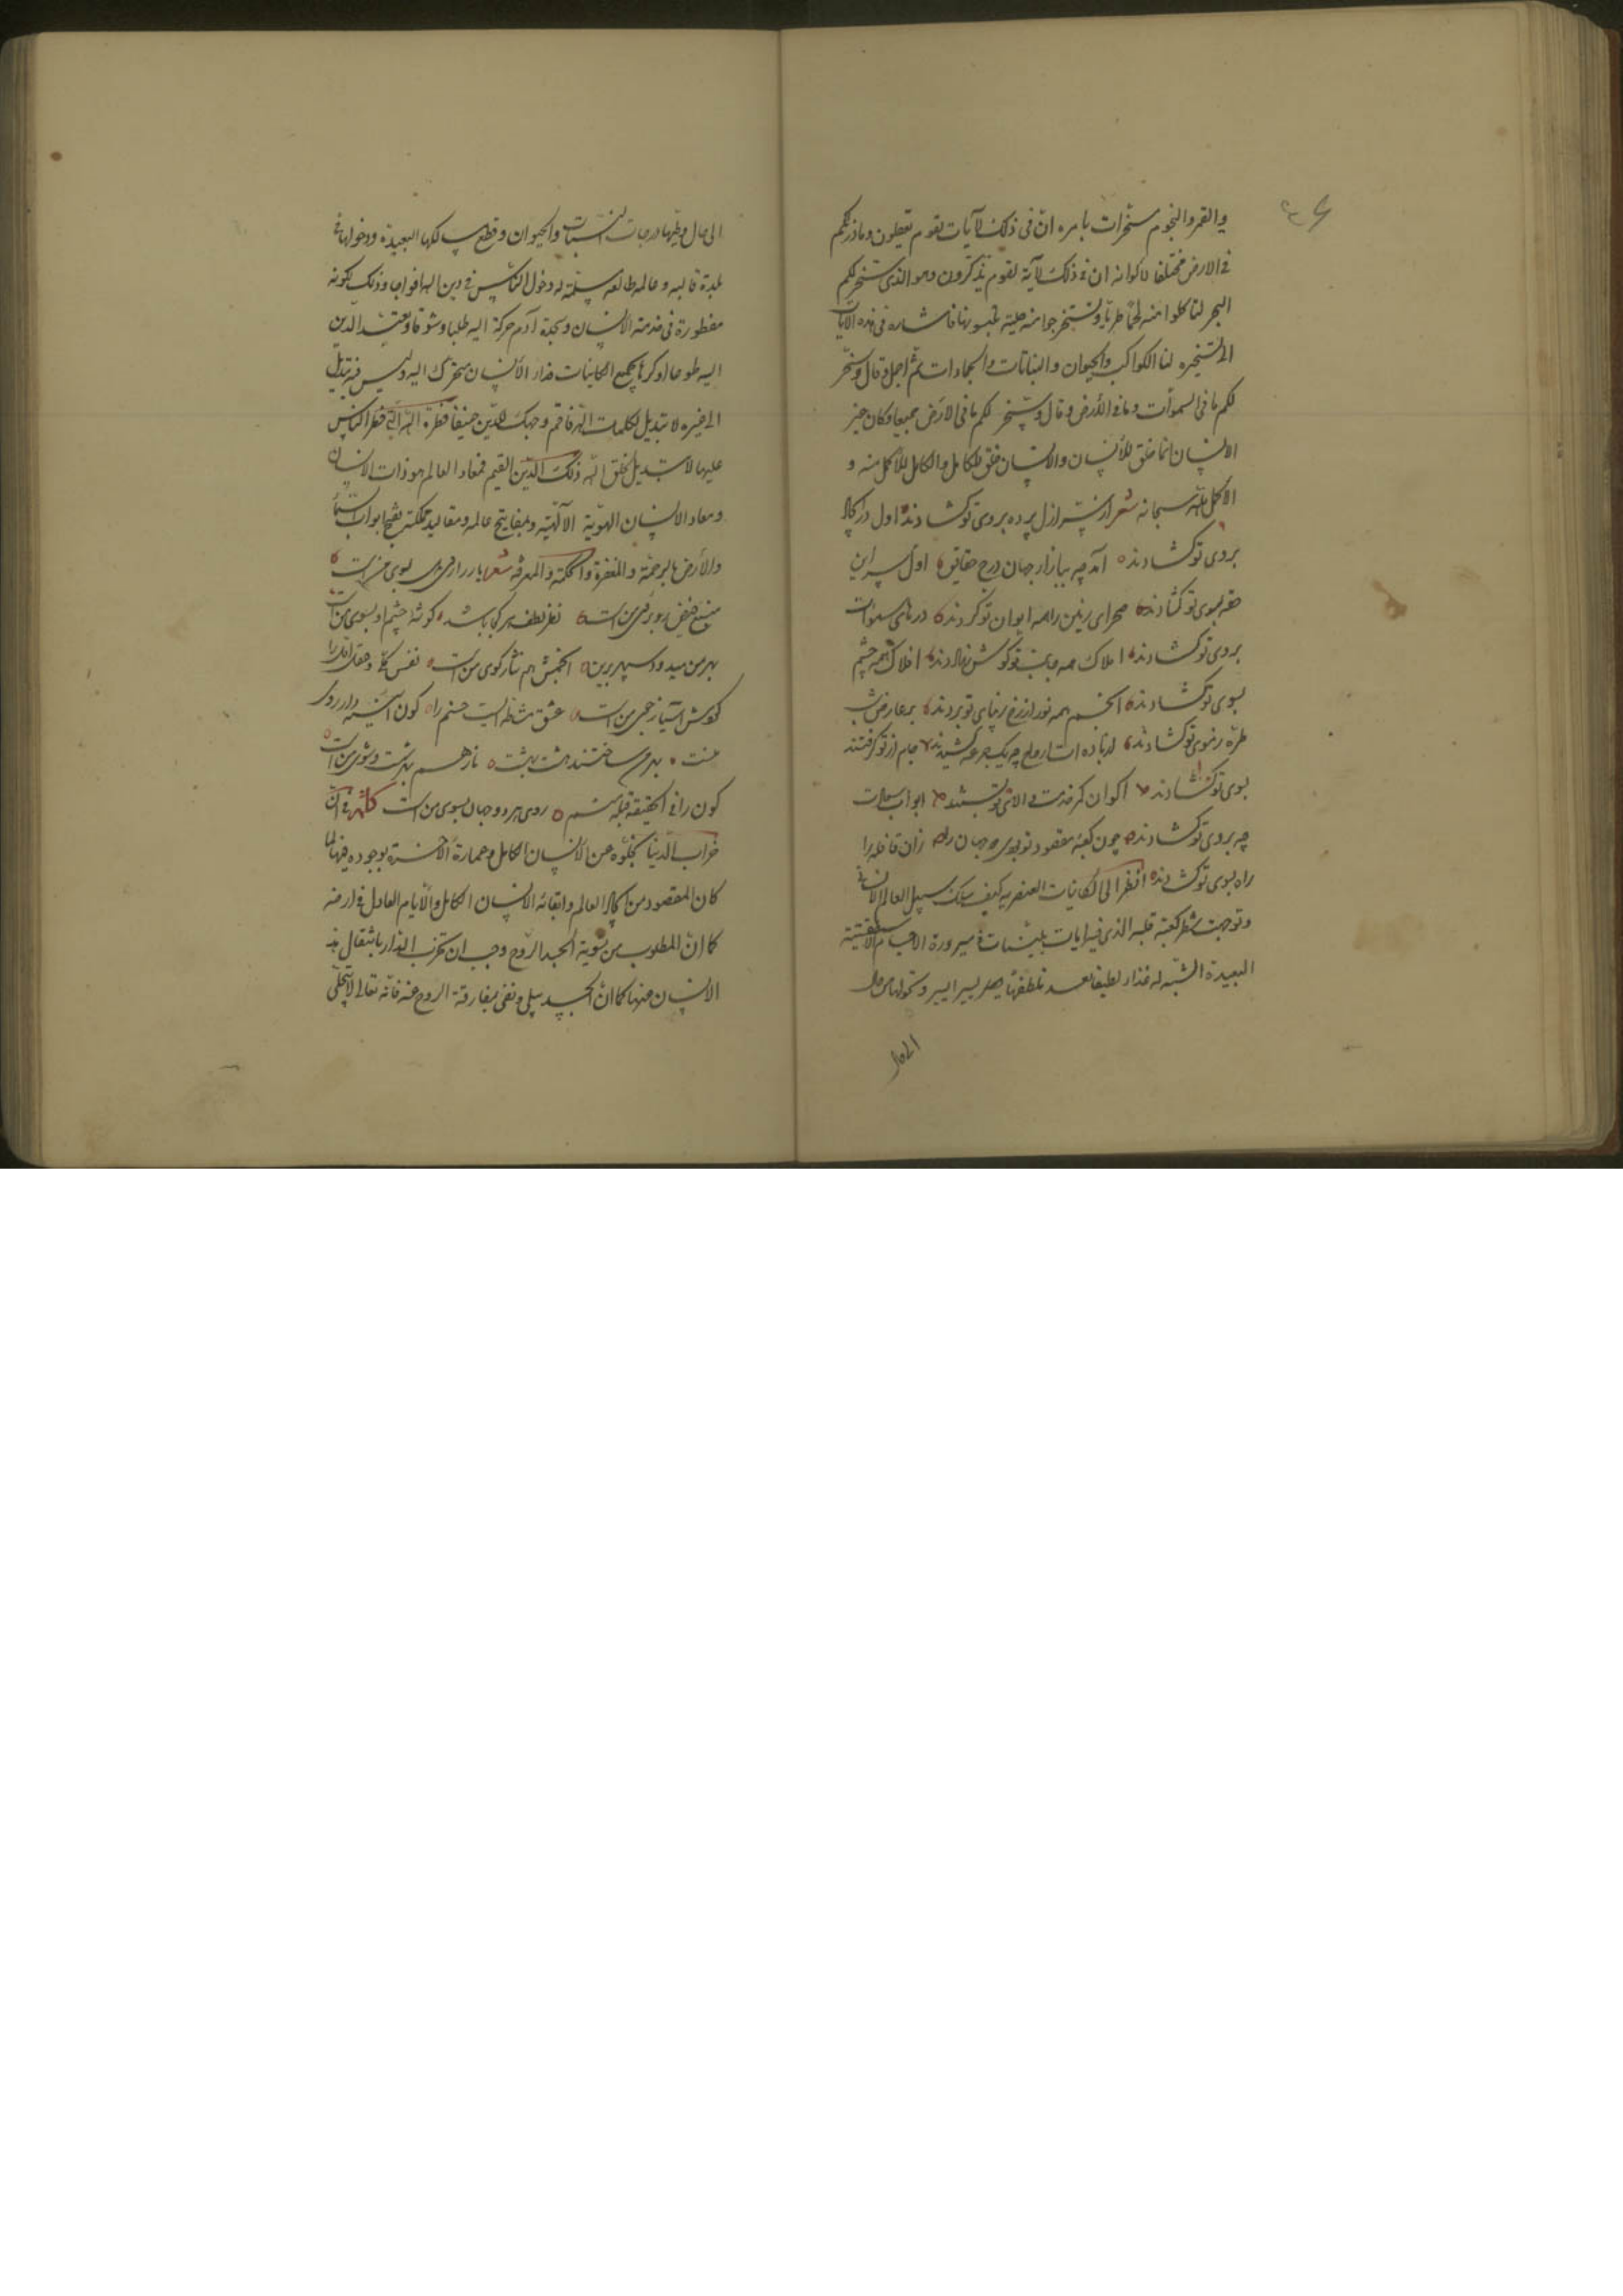 والقمر والنجوم مسخرات بامره ان فی ذلک لآیات لقوم یعقلون وما ذرأ لکم
فی الارض مختلفا الوانه ان فی ذلک لآیة لقوم یذکرون وهو الذی سخر لکم
البحر لتاکلوا منه لحما طریا وتستخرجوا منه حلیة تلبسونها فاشار فی هذه الآیات
الی تسخیره لنا الکواکب والحیوان والنباتات والجمادات ثم اجمل وقال وسخر
لکم ما فی السموات وما فی الارض وقال وسخر لکم ما فی الارض جمیعا وکان غیر
الانسان انما خلق للانسان والانسان خلق للکامل والکامل للاکمل منه و
الاکمل لله سبحانه شعر از پرده بروی تو گشادند اول در
بروی تو گشادند آمد چه ببازار جهان درج حقایق اول سر این
حقه بسوی تو گشادند صحرای زمین را همه ایوان تو کردند درهای سموات
بروی تو گشادند املاک همه جانب تو گوش نهادند افلاک همه چشم
بسوی تو گشادند انجم همه نور از رخ زیبای تو بردند بر عارض شب
طره ز موی تو گشادند چو یک جرعه کشیدند جام از تو گرفتند
بوی تو گشادند اکوان کمر خدمت والای تو بستند ابواب سعادت
چه بروی تو گشادند چون کعبه مقصود تو بودی دو جهان را زان قافله را
راه بسوی تو گشادند انظر الی الکائنات العنصریه کیف سلک سبیل العالم الانسانی
وتوجهت شطر کعبة قلبه الذی فیه آیات بینات فی سیرورة الاجسام
البعیدة الشبه له غذاء لطیفا بعد تلطفها یسیرا یسیرا وتحولها من حال
الی حال وطیها درجات النبات والحیوان وقطع مسالکها البعیدة ودخولها فی
بلدة قالبه وعالمه طائعه مسلمة له دخول الناس فی دین الله افواجا وذلک لکونه
مفطورة فی خدمة الانسان وسجدة آدم حرکة الیه طلبا وشوقا الدین
الیه طوعا او کرها جمیع الکائنات غذاء الانسان متحرک الیه ولیس فیه تبدیل
الی غیره لا تبدیل لکلمات الله فاقم وجهک للدین حنیفا فطرة الله التی فطر الناس
علیها لا تبدیل لخلق الله ذلک الدین القیم فمعاد العالم هو ذات الانسان
ومعاد الانسان الهویة الالهیة وبمفاتیح عالمه ومقالید مملکته یفتح ابواب السماء
والارض بالرحمة والمغفرة والحکمة والمعرفة شعر بسوی منست
منبع فیض من است نظر لطف هر کجا باشد گوشه چشم او بسوی من است
بهر من میدود سپهر برین انجمش هم نثار کوی من است نفس کلی وعقل اول را
گوش من است عشق مشاطه ایست حسنم را کون آئینه دار روی
منست بهر من ساختند هشت بهشت من است
کون را فی الحقیقه قبله منم روی هر دو جهان بسوی من است کلمة فی ان
خراب الدنیا بخلوه عن الانسان الکامل وعمارة الآخرة بوجوده فیها لما
کان المقصود من العالم وابقائه الانسان الکامل والامام العادل فی ارضه
کما ان المطلوب من تسویة الجسد الروح وجب ان تخرب الدار بانتقال هذا
الانسان منها کما ان الجسد یبلی ویفنی بمفارقة الروح عنه فانه تعالی لا یتجلی